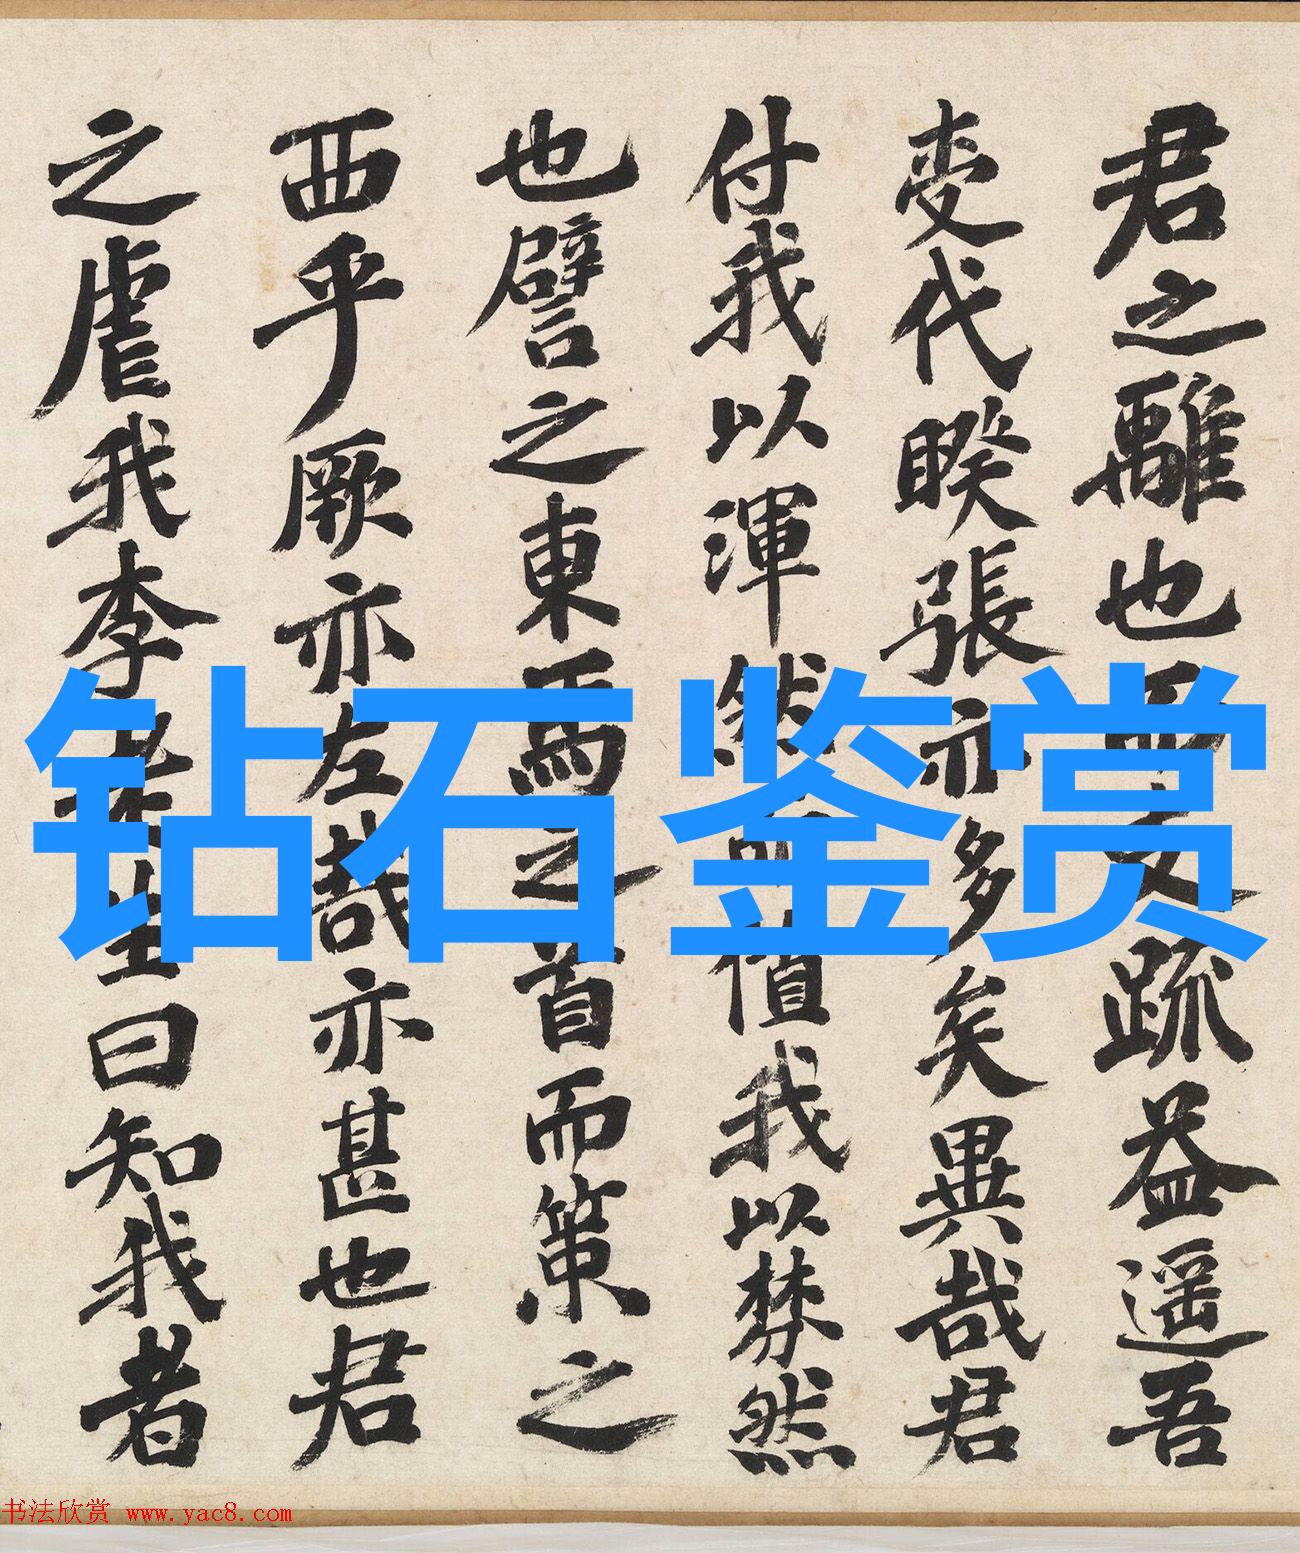 君之離也疏益遥吾
变代睽張亦多矣異哉君
付我以渾然值我以棼然
也譬之東馬之首而策之
西乎厥亦左哉亦甚也君
之虐我李生曰知我者
钻石鉴赏
书法欣赏 www.yac8.com